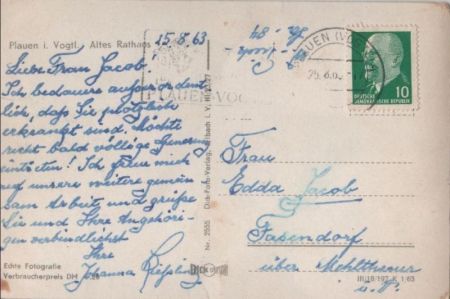 Plauen i. Vogtl. Altes Rathaus
15.8.63
Liebe Frau Jacob.
Ich bedaure außerordent-
lich, daß Sie plötzlich
erkrankt sind. Möchte
recht bald völlige Genesung
eintreten! Ich freue mich
auf unsere weitere gemein-
sam Arbeit und grüße
Sie und Ihre Angehöri-
gen verbindlichst
Ihre
Johanna Kießling
Echte Fotografie
Verbraucherpreis DM
Nr. 2555
PLAUEN-VOG
PLAUEN (VOG
DEUTSCHE
DEMOKRATISCHE REPUBLIK
10
Frau
Edda Jacob
Fasendorf
über Mehltheuer
i. V.
III/18/197 K 1/63